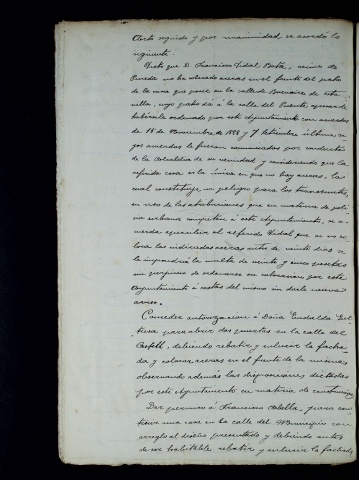 Acto seguido y por unanimidad se acordó lo
siguiente:
Visto que D. Francisco Vidal Bota, vecino de
no ha colocado aceras en el frente del patio
de la casa que posee en la calle de Buenaire de esta
villa, cuyo patio dá á la calle del Puente, apesar de
habérselo ordenado por este Ayuntamiento con acuerdos
de 15 de Noviembre de 1888 y 7 Setiembre último, cu-
yos acuerdos le fueron comunicados por conducto
de la Alcaldía de su vecindad y considerando que la
referida casa es la única en que no hay aceras, lo
cual constituye un peligro para los transeuntes,
en uso de las atribuciones que en materia de poli-
cia urbana competen á este Ayuntamiento, se a-
cuerda al referido Vidal que si no co-
loca las indicadas aceras antes de veinte dias se
le impondrá la multa de veinte y cinco pesetas
sin perjuicio de ordenarse su colocacion por este
Ayuntamiento á costas del mismo sin darle nuevo
aviso.
Conceder autorizacion á Doña
para abrir dos puertas en la calle del
Castell, debiendo rebatir y enlucir la facha-
da y colocar aceras en el frente de la misma
observando además las disposiciones dictadas
por este Ayuntamiento en materia de construccion.
Dar permiso á Francisco Abella, para cons-
truir una casa en la calle del Municipio con
arreglo al diseño presentado y debiendo antes
de ser habitable rebatir y enlucir la fachada